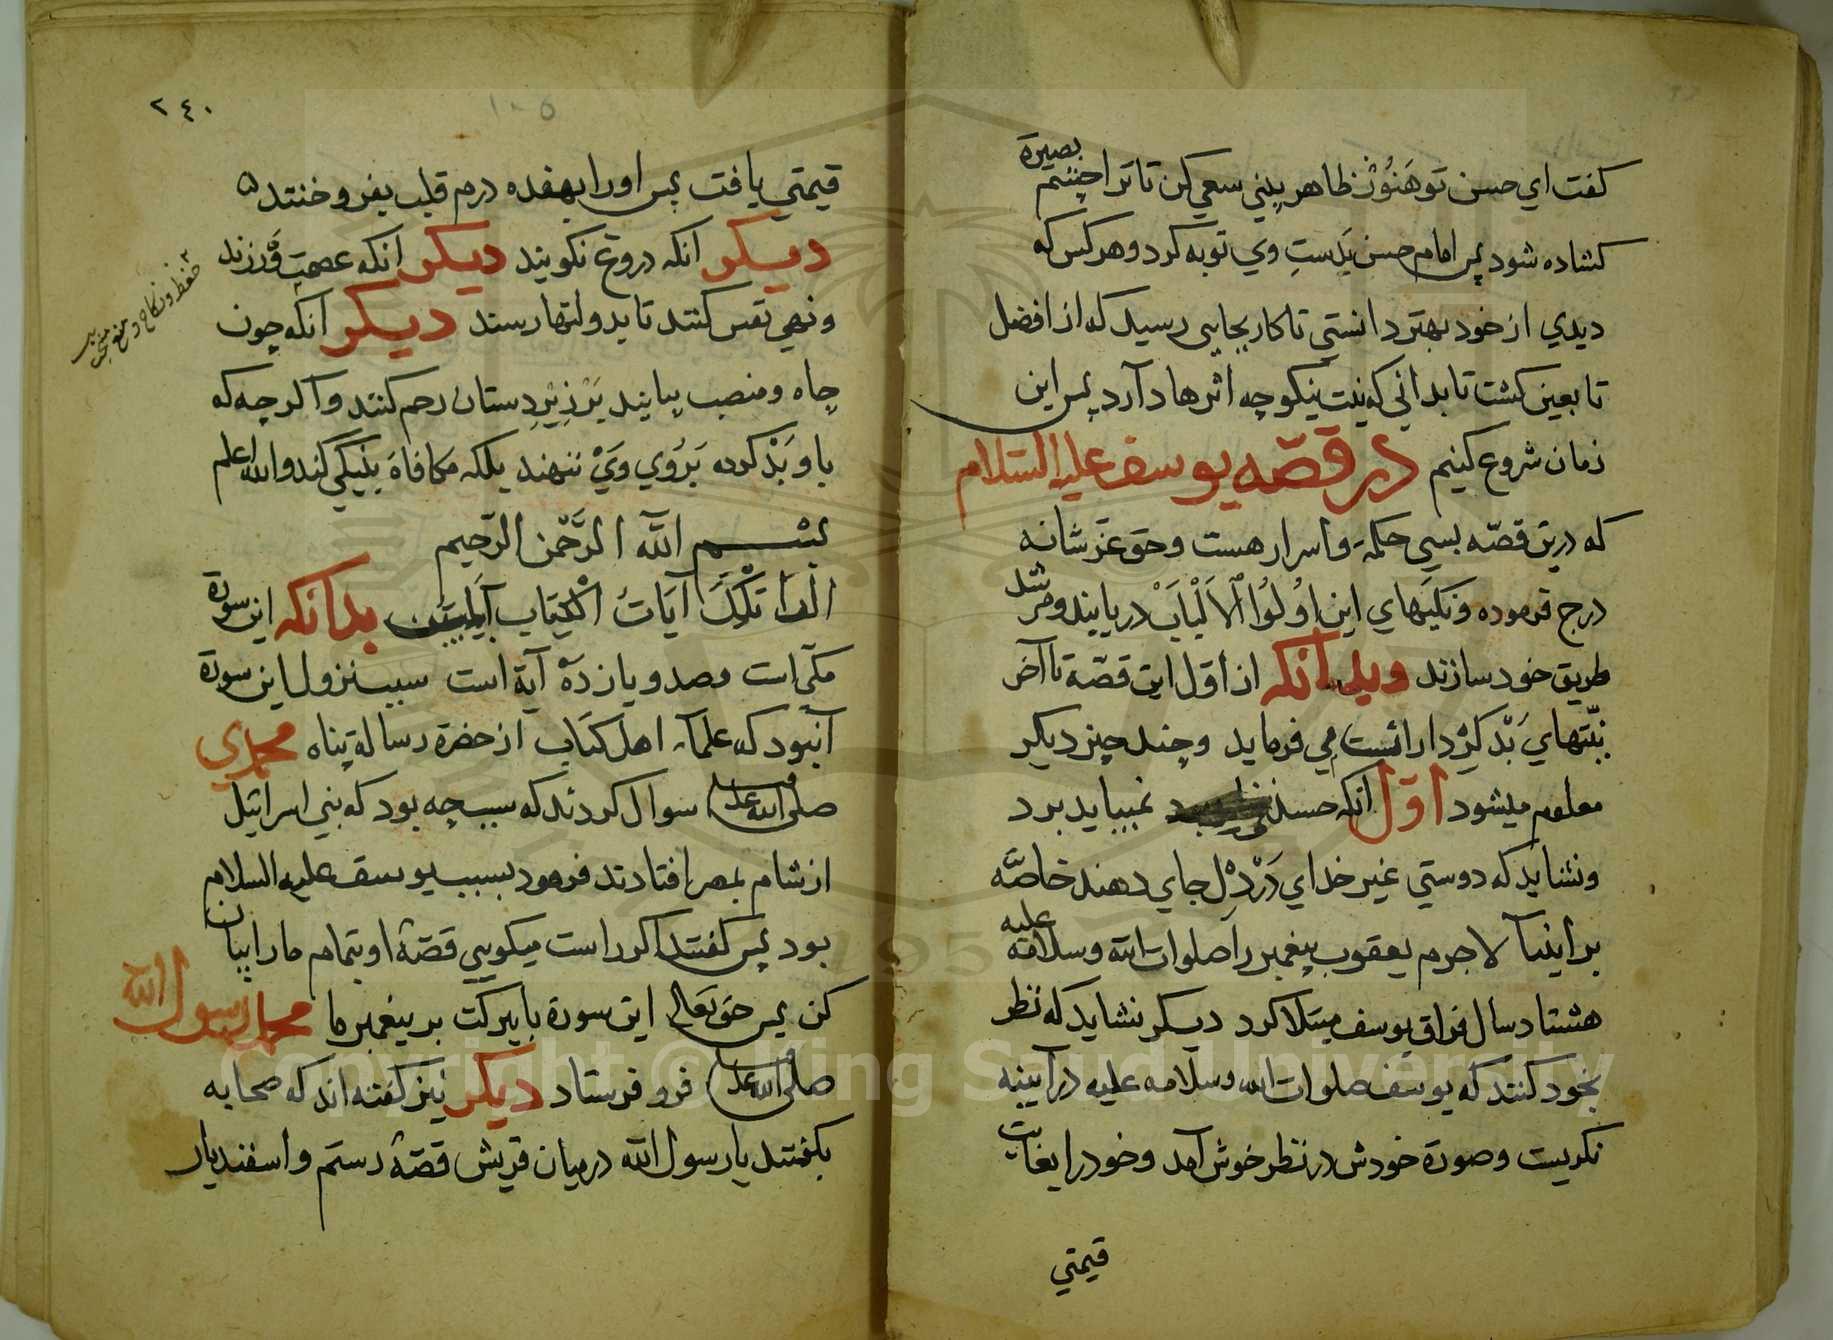 كفت اي حسن تو هنوز ظاهر بيني سعي كن تا ترا چشم بصيرة
كشاده شود پس امام حسن بدست وي توبه كرد و هر كس كه
ديدي از خود بهتر دانستي تا كار بجايي رسيد كه از افضل
تابعين كشت تا بداني كه نيت نيكو چه اثرها دآرد پس اين
زمان شروع كنيم در قصّه يوسف عليه السّلام
كه درين قصّه بسي حكمة و اسرار هست و حق عز شانه
درج فرموده و نكتهاي اين اُولُوا الْاَلْبَابْ دريابند و مرشد
طريق خود سازند و بدانكه از اوّل اين قصّة تا آخر
نيّتهاي بَدْ كِرْدار انست مي فرمايد و چند چيز ديكر
معلوم ميشود اوّل آنكه حسد نميبايد برد
و نشايد كه دوستي غير خداي دَرْ دِل جاي دهند خاصّه
بر ابنيآ لا جرم يعقوب پيغمبر را صلوات الله و سلامه عليه
هشتاد سال فراق يوسف مبتلا كرد ديكر نشايد كه نظر
بخود كنند كه يوسف صلوات الله و سلامه عليه در آيينه
نكريست و صورة خودش در نظر خوش آمد و خود را بغايت
قيمتي
٢٤٠
١٠٥
قيمتي يافت پس او را بهفده درم قلب بفروختند
ديكر انكه دروغ نكويند ديكر انكه عصمت فرزند
و نهي نفس كنند تا بدولتها رسند ديكر انكه چون
جاه و منصب بيابند بَرْ زِيْرِدستان رحم كنند و اكرچه كه
با و بَدْ كرده بَرُوي وَيْ ننهند بلكه مكافاة بنيكي كنند و الله اعلم
بسم الله الرَّحْمن الرّحيم
الٓرٰ تِلْكَ آيَاتُ الْكِتَابِ الْمُبِين بدانكه اين سورة
مكّي است و صد و يازدَهْ آية است سبب نزول اين سورة
آنبود كه علمآء اهل كتاب از حضرة رسالة پناه محمدي
صلى الله عليه سوال كردند كه سبب چه بود كه بني اسرائيل
از شام بمصر افتادند فرمود بسبب يوسف عليه السلام
بود پس كفتند اكر راست ميكويي قصّهٔ او بتمام ما را بيان
كن پس حق تعالى اين سورة با بركت بر پيغمبر ما محمد رسول الله
صلى الله عليه فرو فرستاد ديكر نيز كفته اند كه صحابه
بكفتند يا رسول الله در ميان قريش قصّهٔ رستم و اسفنديار
Copyright © King Saud University